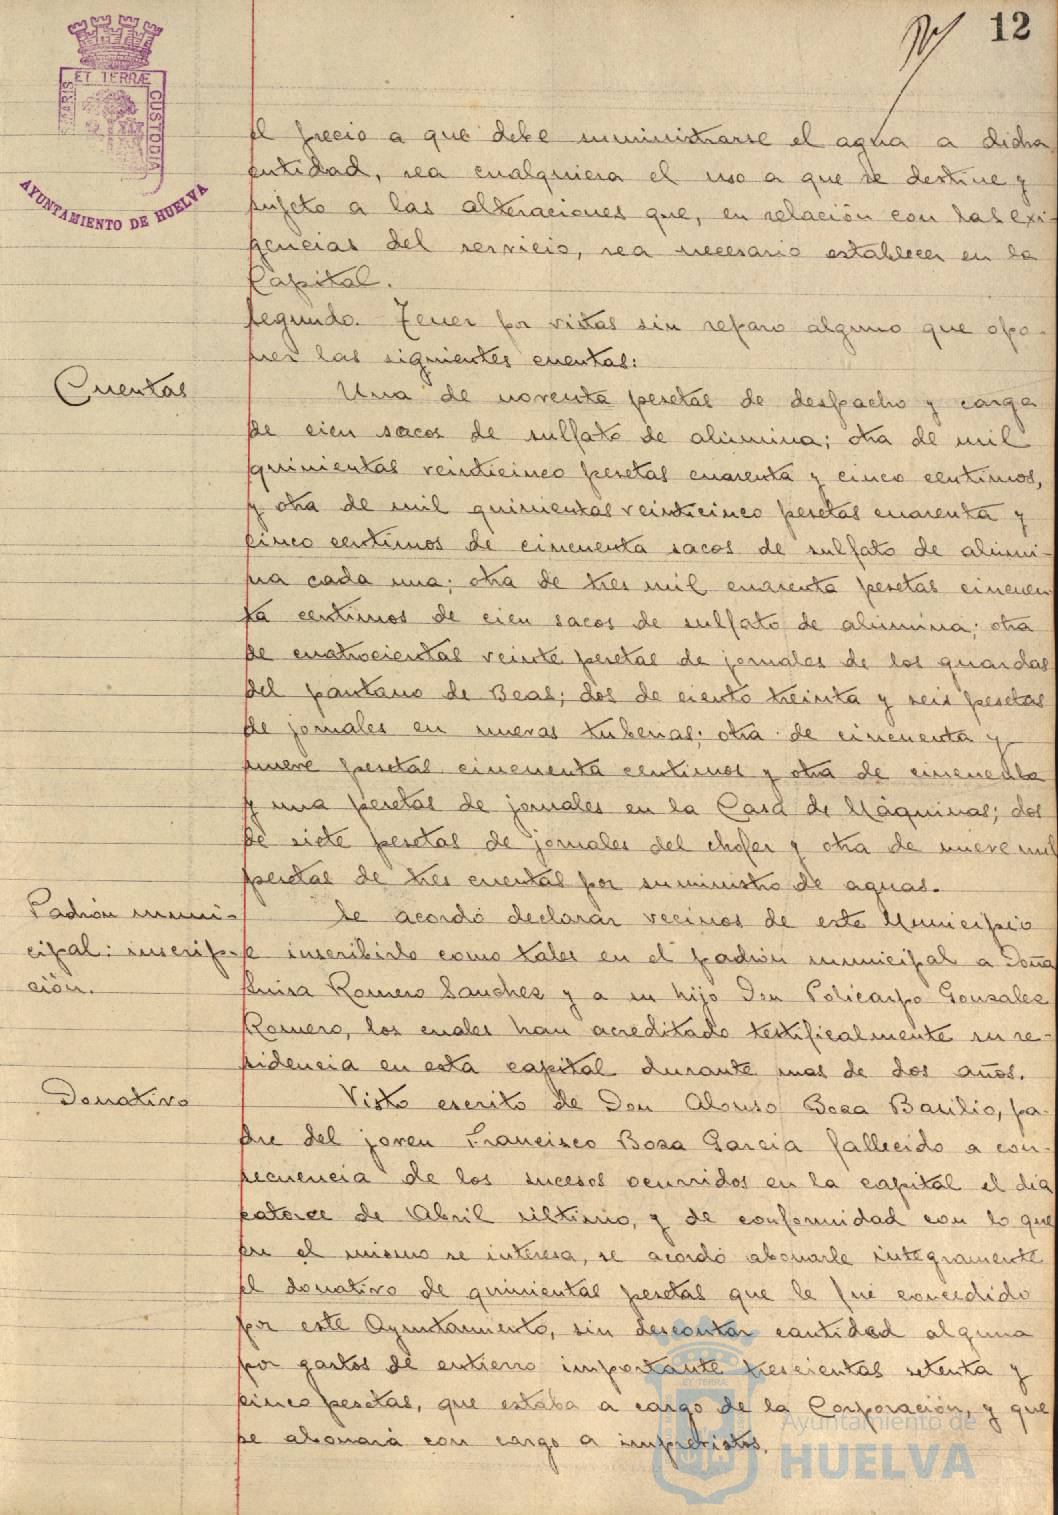 12
ET TERRÆ
S. MARIS
CUSTODIA
AYUNTAMIENTO DE HUELVA
el precio a que debe suministrarse el agua a dicha
entidad, sea cualquiera el uso a que se destine y
sujeto a las alteraciones que, en relación con las exi-
gencias del servicio, sea necesario establecer en la
Capital.
Segundo. Tener por vistas sin reparo alguno que opo-
ner las siguientes cuentas:
Cuentas
Una de noventa pesetas de despacho y carga
de cien sacos de sulfato de alúmina; otra de mil
quinientas veinticinco pesetas cuarenta y cinco centimos,
y otra de mil quinientas veinticinco pesetas cuarenta y
cinco centimos de cincuenta sacos de sulfato de alúmi-
na cada una; otra de tres mil cuarenta pesetas cincuen
ta centimos de cien sacos de sulfato de alúmina; otra
de cuatrocientas veinte pesetas de jornales de los guardas
del pantano de Beas; dos de ciento treinta y seis pesetas
de jornales en nuevas tuberias; otra de cincuenta y
nueve pesetas cincuenta centimos y otra de cincuenta
y una pesetas de jornales en la Casa de Máquinas; dos
de siete pesetas de jornales del chofer y otra de nueve mil
pesetas de tres cuentas por suministro de aguas.
Padrón muni-
cipal: inscrip-
ción.
Se acordó declarar vecinos de este Municipio
e inscribirlo como tales en el padrón municipal a Doña
Luisa Romero Sanchez y a su hijo Don Policarpo Gonzalez
Romero, los cuales han acreditado testificalmente su re-
sidencia en esta capital durante mas de dos años.
Donativo
Visto escrito de Don Alonso Boza Basilio, pa-
dre del joven Francisco Boza Garcia fallecido a con-
secuencia de los sucesos ocurridos en la capital el dia
catorce de Abril último, y de conformidad con lo que
en el mismo se interesa, se acordó abonarle integramente
el donativo de quinientas pesetas que le fué concedido
por este Ayuntamiento, sin descontar cantidad alguna
por gastos de entierro importante trescientas setenta y
cinco pesetas, que estaba a cargo de la Corporación, y que
se abonará con cargo a imprevistos.
Ayuntamiento de
HUELVA